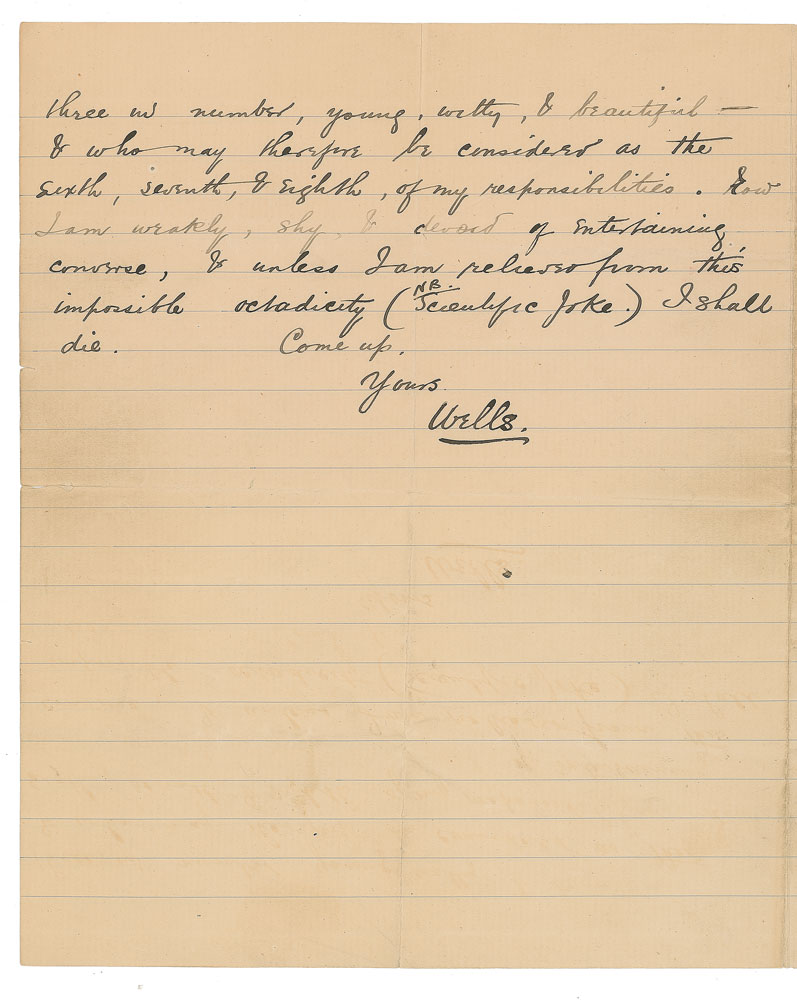 three in number, young, witty, & beautiful —
& who may therefore be considered as the
sixth, seventh, & eighth, of my responsibilities. Now
I am weakly, shy, & devoid of entertaining
converse, & unless I am relieved from this
impossible octadicity (NB. Scientific Joke.) I shall
die. Come up.
Yours
Wells.